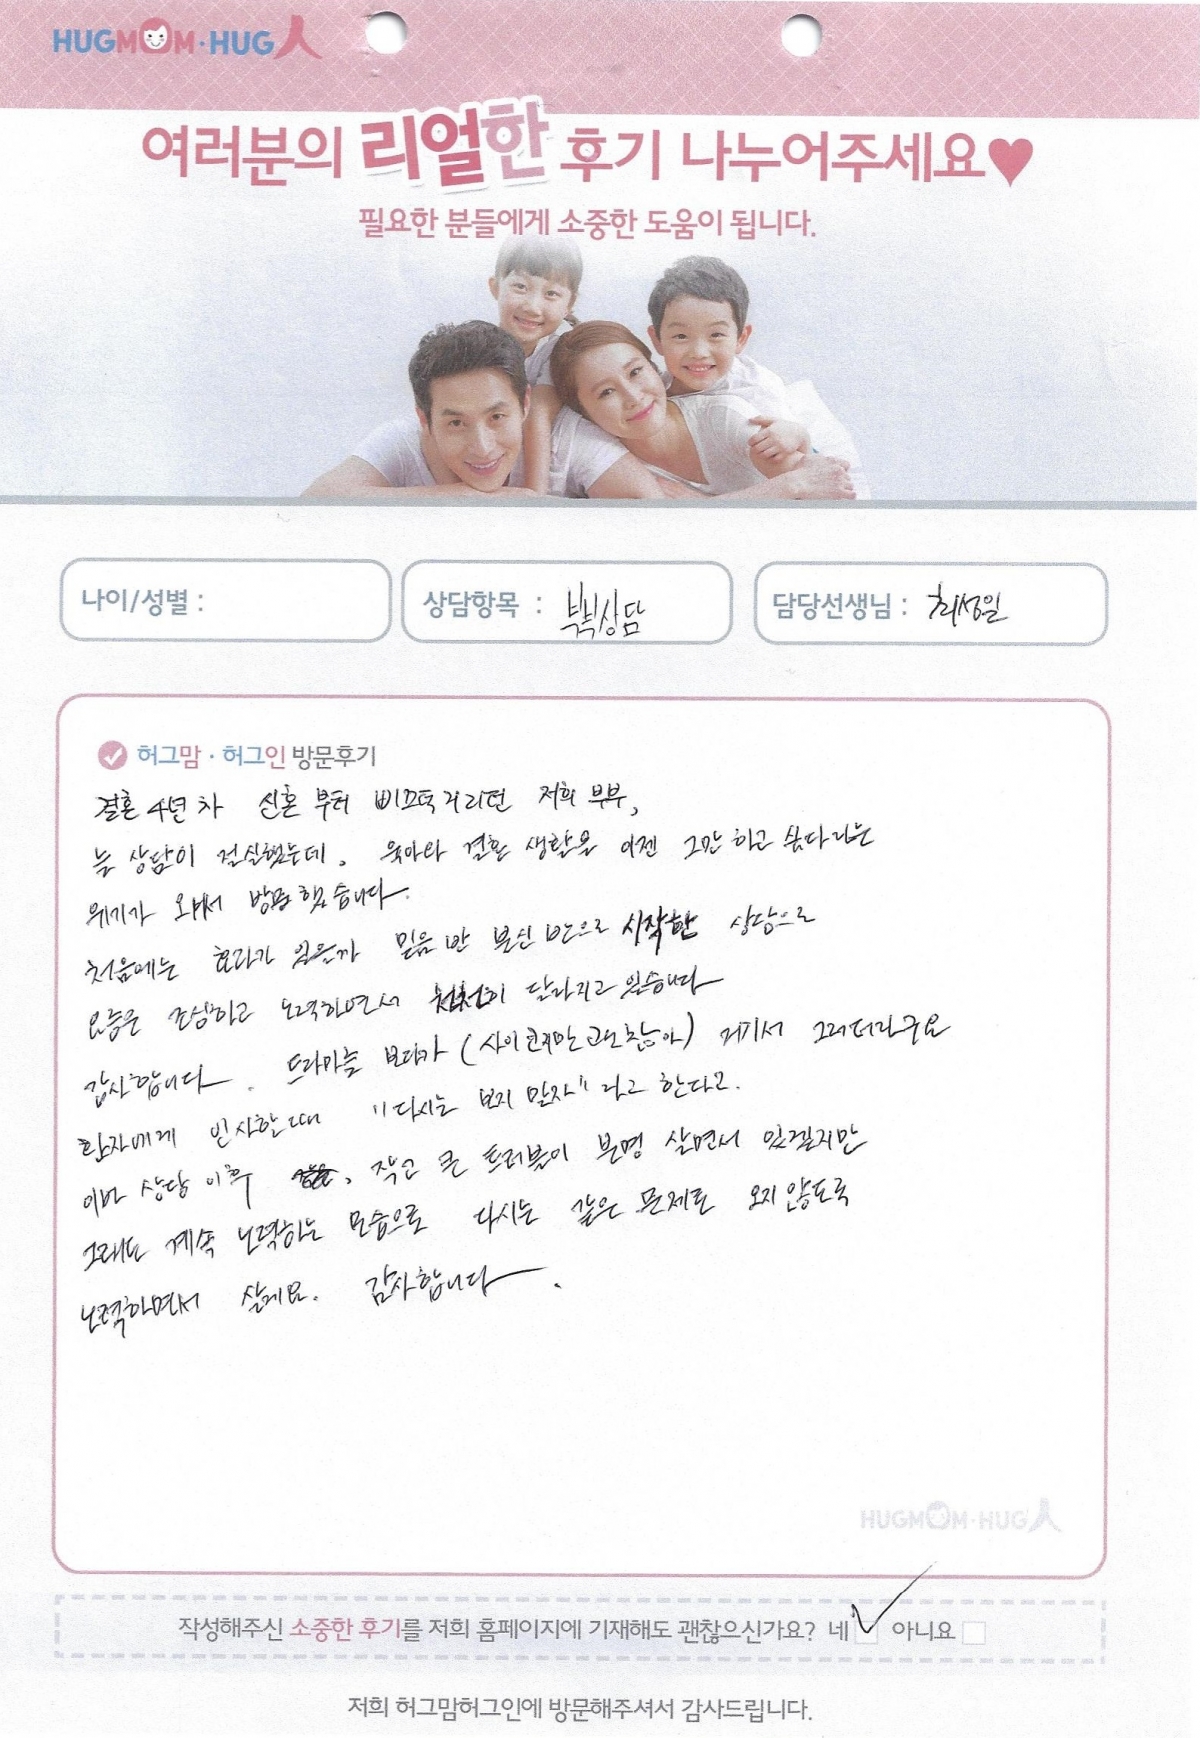 HUGMOM·HUG人
여러분의 리얼한 후기 나누어주세요♥
필요한 분들에게 소중한 도움이 됩니다.
나이/성별 :
상담항목 : 부부상담
담당선생님 : 최성일
허그맘·허그인 방문후기
결혼 4년차 신혼부터 삐그덕거리던 저희 부부,
늘 상담이 절실했는데, 육아와 결혼 생활을 이젠 그만하고 싶다라는
위기가 와서 방문했습니다.
처음에는 효과가 있을까 믿음 반 불신 반으로 시작한 상담으로
요즘은 조심하고 노력하면서 천천히 달라지고 있습니다
감사합니다. 드라마를 보다가 (사이코지만 괜찮아) 거기서 그러더라구요
환자에게 인사할때 "다시는 보지 말자"라고 한다고.
이번 상담 이후, 작고 큰 트러블이 분명 살면서 있겠지만
그래도 계속 노력하는 모습으로 다시는 같은 문제로 오지 않도록
노력하면서 살게요. 감사합니다.
HUGMOM·HUG人
작성해주신 소중한 후기를 저희 홈페이지에 기재해도 괜찮으신가요? 네 아니요
저희 허그맘허그인에 방문해주셔서 감사드립니다.